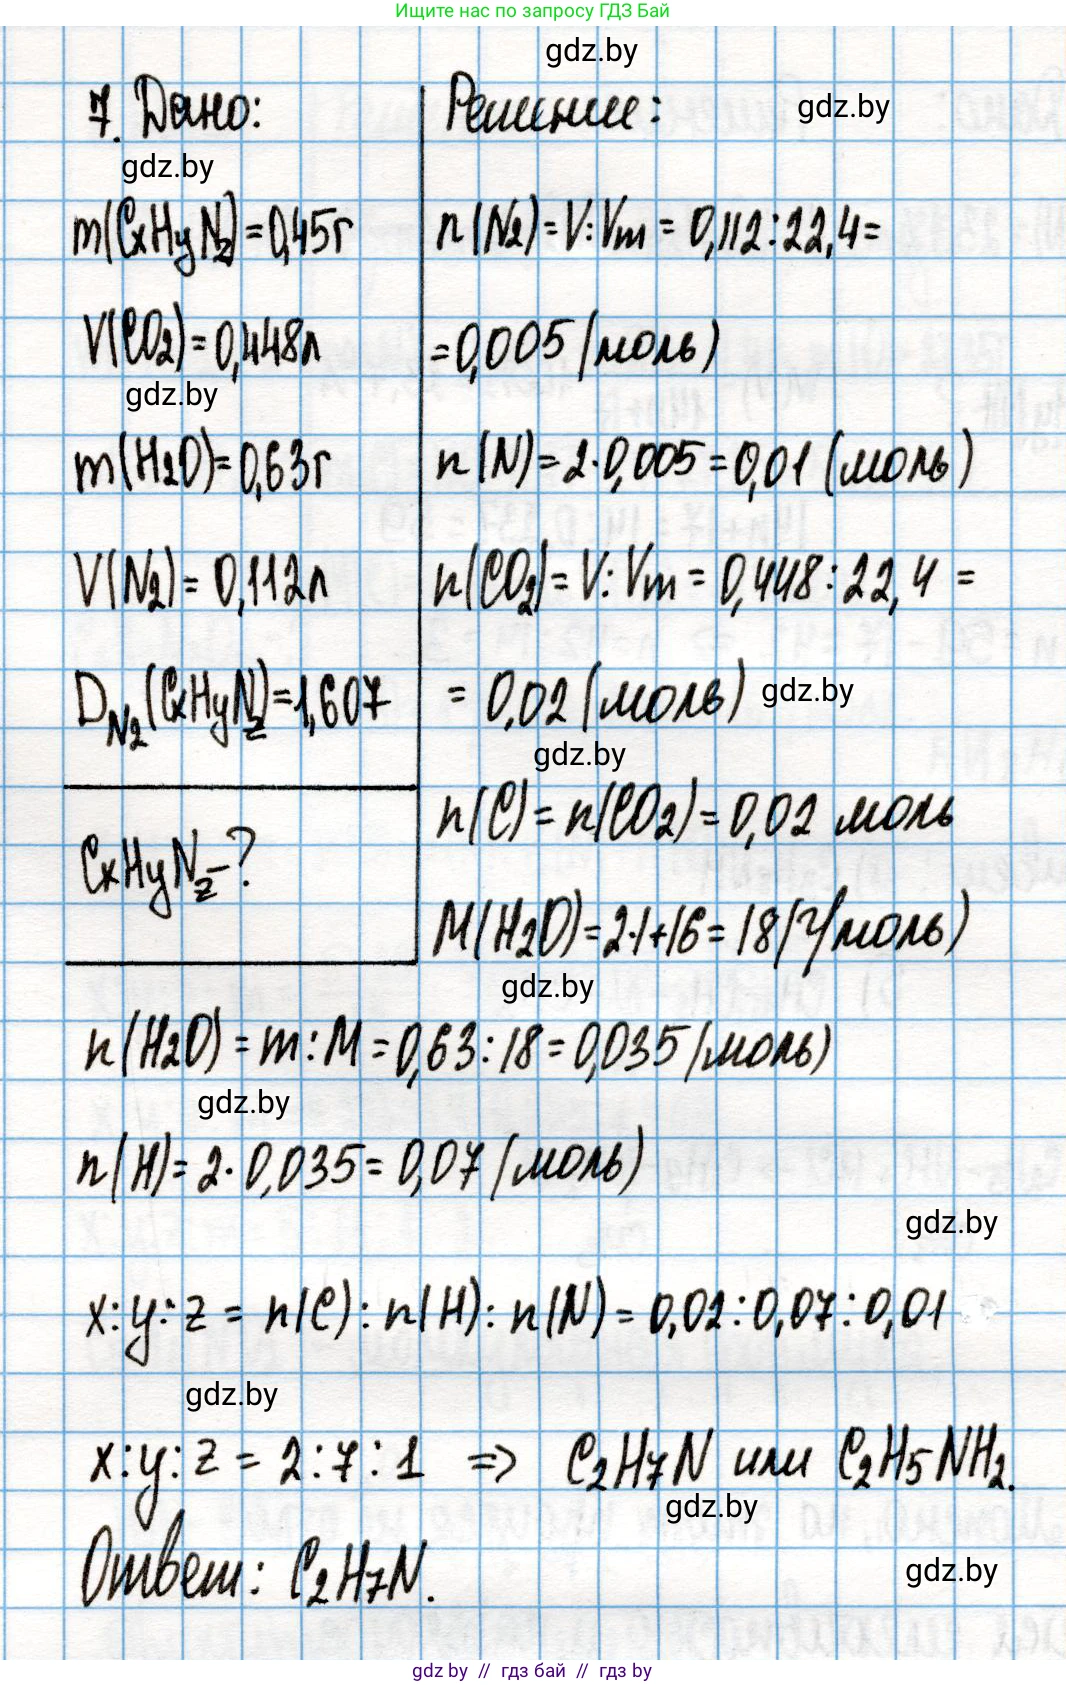 Ищите нас по запросу ГДЗ Бай
gdz.by
7. Дано:
gdz.by
m(CxHyNz)=0,45г
V(CO2)=0,448л
gdz.by
m(H2O)=0,63г
V(N2)=0,112л
DN2(CxHyNz)=1,607
CxHyNz-?
Решение:
gdz.by
n(N2)=V:Vm=0,112:22,4=
=0,005(моль)
n(N)=2·0,005=0,01(моль)
n(CO2)=V:Vm=0,448:22,4=
=0,02(моль)
gdz.by
gdz.by
n(C)=n(CO2)=0,02 моль
M(H2O)=2·1+16=18(г/моль)
gdz.by
n(H2O)=m:M=0,63:18=0,035(моль)
gdz.by
n(H)=2·0,035=0,07(моль)
gdz.by
x:y:z=n(C):n(H):n(N)=0,02:0,07:0,01
gdz.by
x:y:z=2:7:1 => C2H7N или C2H5NH2.
gdz.by
Ответ: C2H7N.
gdz.by
gdz by // гдз бай // гдз by